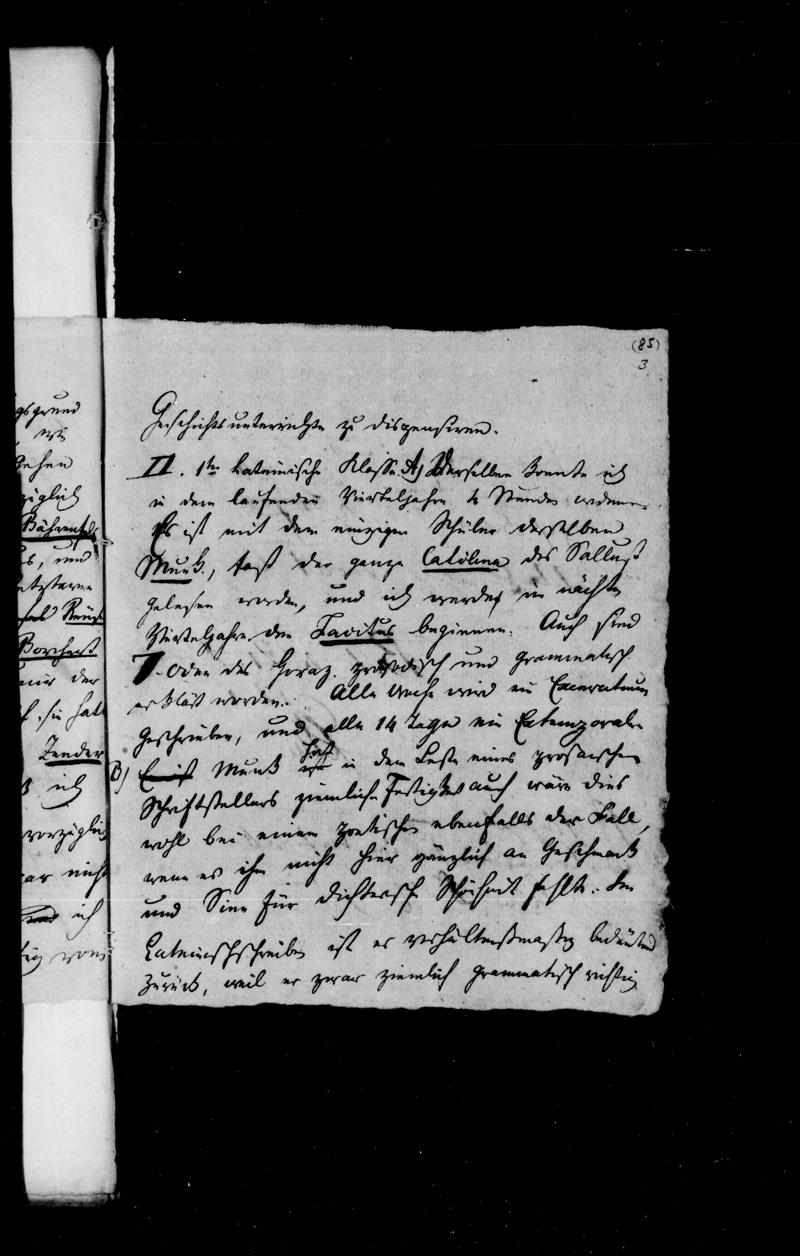 (85)
3
Geschichtsunterrichte zu dispensiren.
II. 1te Lateinische Klasse. A) Derselben konnte ich
in dem laufenden Vierteljahre 4 Stunden widmen.
Es ist mit dem einzigen Schüler derselben
Munk, fast der ganze Catilina des Sallust
gelesen worden, und ich werde im nächsten
Vierteljahre den Tacitus beginnen. Auch sind
7. Oden des Horaz. prosodisch und grammatisch
erklärt worden. Alle Woche wird ein Exercitium
geschrieben, und alle 14 Tage ein Extemporale.
B) Munk hat in dem Lesen eines prosaischen
Schriftstellers ziemliche Festigkeit auch wäre dies
wohl bei einem poetischen ebenfalls der Fall,
wenn es ihm nicht hier gänzlich an Geschmack
und Sinn für dichterische Schönheit fehlte. Im
Lateinischschreiben ist er verhältnißmäßig bedeutend
zurück, weil er zwar ziemlich grammatisch richtig
wie
gehen
züglich
Bährenfels
und
Borchert
nur der
sie hatte
Zender
ich
vorzüglich
war nicht
ich